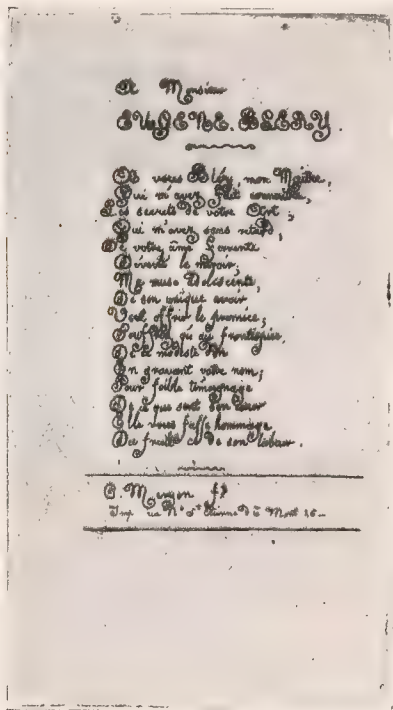 A Monsieur
EUGENE. BLERY.
O vous Bléry, mon Maître,
Qui m'avez fait connaître,
Les secrets de votre Art ;
Qui m'avez sans retard,
De votre âme fervente
Dévoilé le miroir;
Ma muse adolescente,
De son unique avoir
Veut offrir le prémice;
Souffrez qu'au frontispice,
De ce modeste don
En gravant votre nom,
Pour foible témoignage
De ce que sent son cœur
Elle vous fasse hommage
Du fruit de son labeur.
C. Meryon ft
Imp. rue Nve St Etienne D. Mont 26